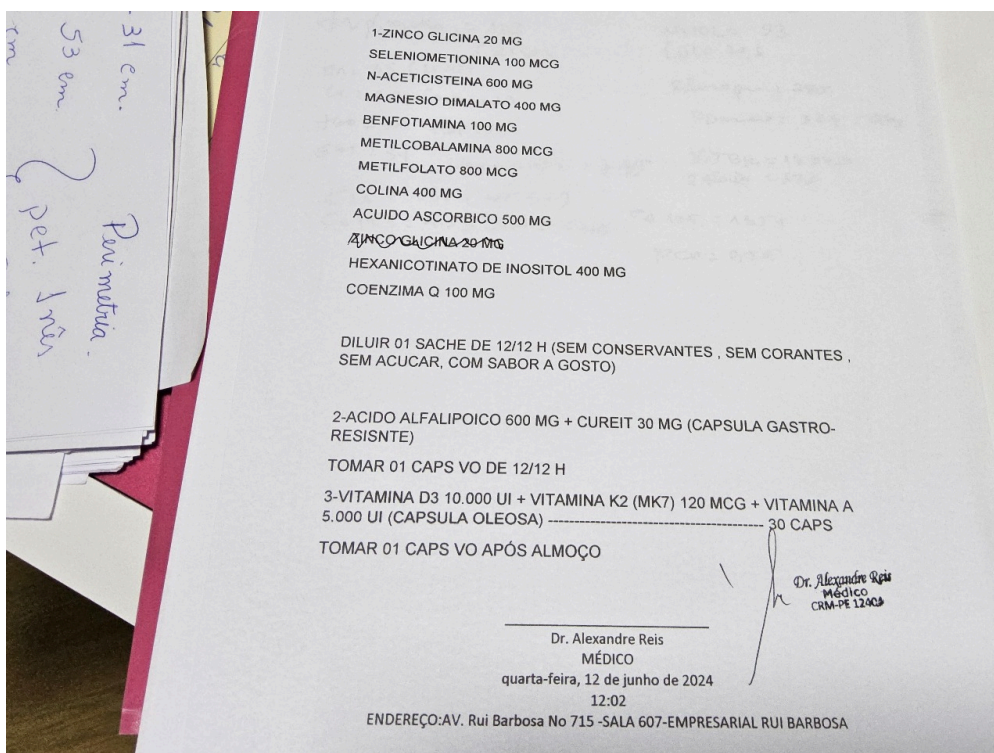 31 em.
53 em.
em
Perimetria.
pet. Inês
1-ZINCO GLICINA 20 MG
SELENIOMETIONINA 100 MCG
N-ACETICISTEINA 600 MG
MAGNESIO DIMALATO 400 MG
BENFOTIAMINA 100 MG
METILCOBALAMINA 800 MCG
METILFOLATO 800 MCG
COLINA 400 MG
ACUIDO ASCORBICO 500 MG
ZINCO GLICINA 20 MG
HEXANICOTINATO DE INOSITOL 400 MG
COENZIMA Q 100 MG
DILUIR 01 SACHE DE 12/12 H (SEM CONSERVANTES , SEM CORANTES ,
SEM ACUCAR, COM SABOR A GOSTO)
2-ACIDO ALFALIPOICO 600 MG + CUREIT 30 MG (CAPSULA GASTRO-
RESISNTE)
TOMAR 01 CAPS VO DE 12/12 H
3-VITAMINA D3 10.000 UI + VITAMINA K2 (MK7) 120 MCG + VITAMINA A
5.000 UI (CAPSULA OLEOSA) ------------------------------------------ 30 CAPS
TOMAR 01 CAPS VO APÓS ALMOÇO
Dr. Alexandre Reis
Médico
CRM-PE
Dr. Alexandre Reis
MÉDICO
quarta-feira, 12 de junho de 2024
12:02
ENDEREÇO:AV. Rui Barbosa No 715 -SALA 607-EMPRESARIAL RUI BARBOSA